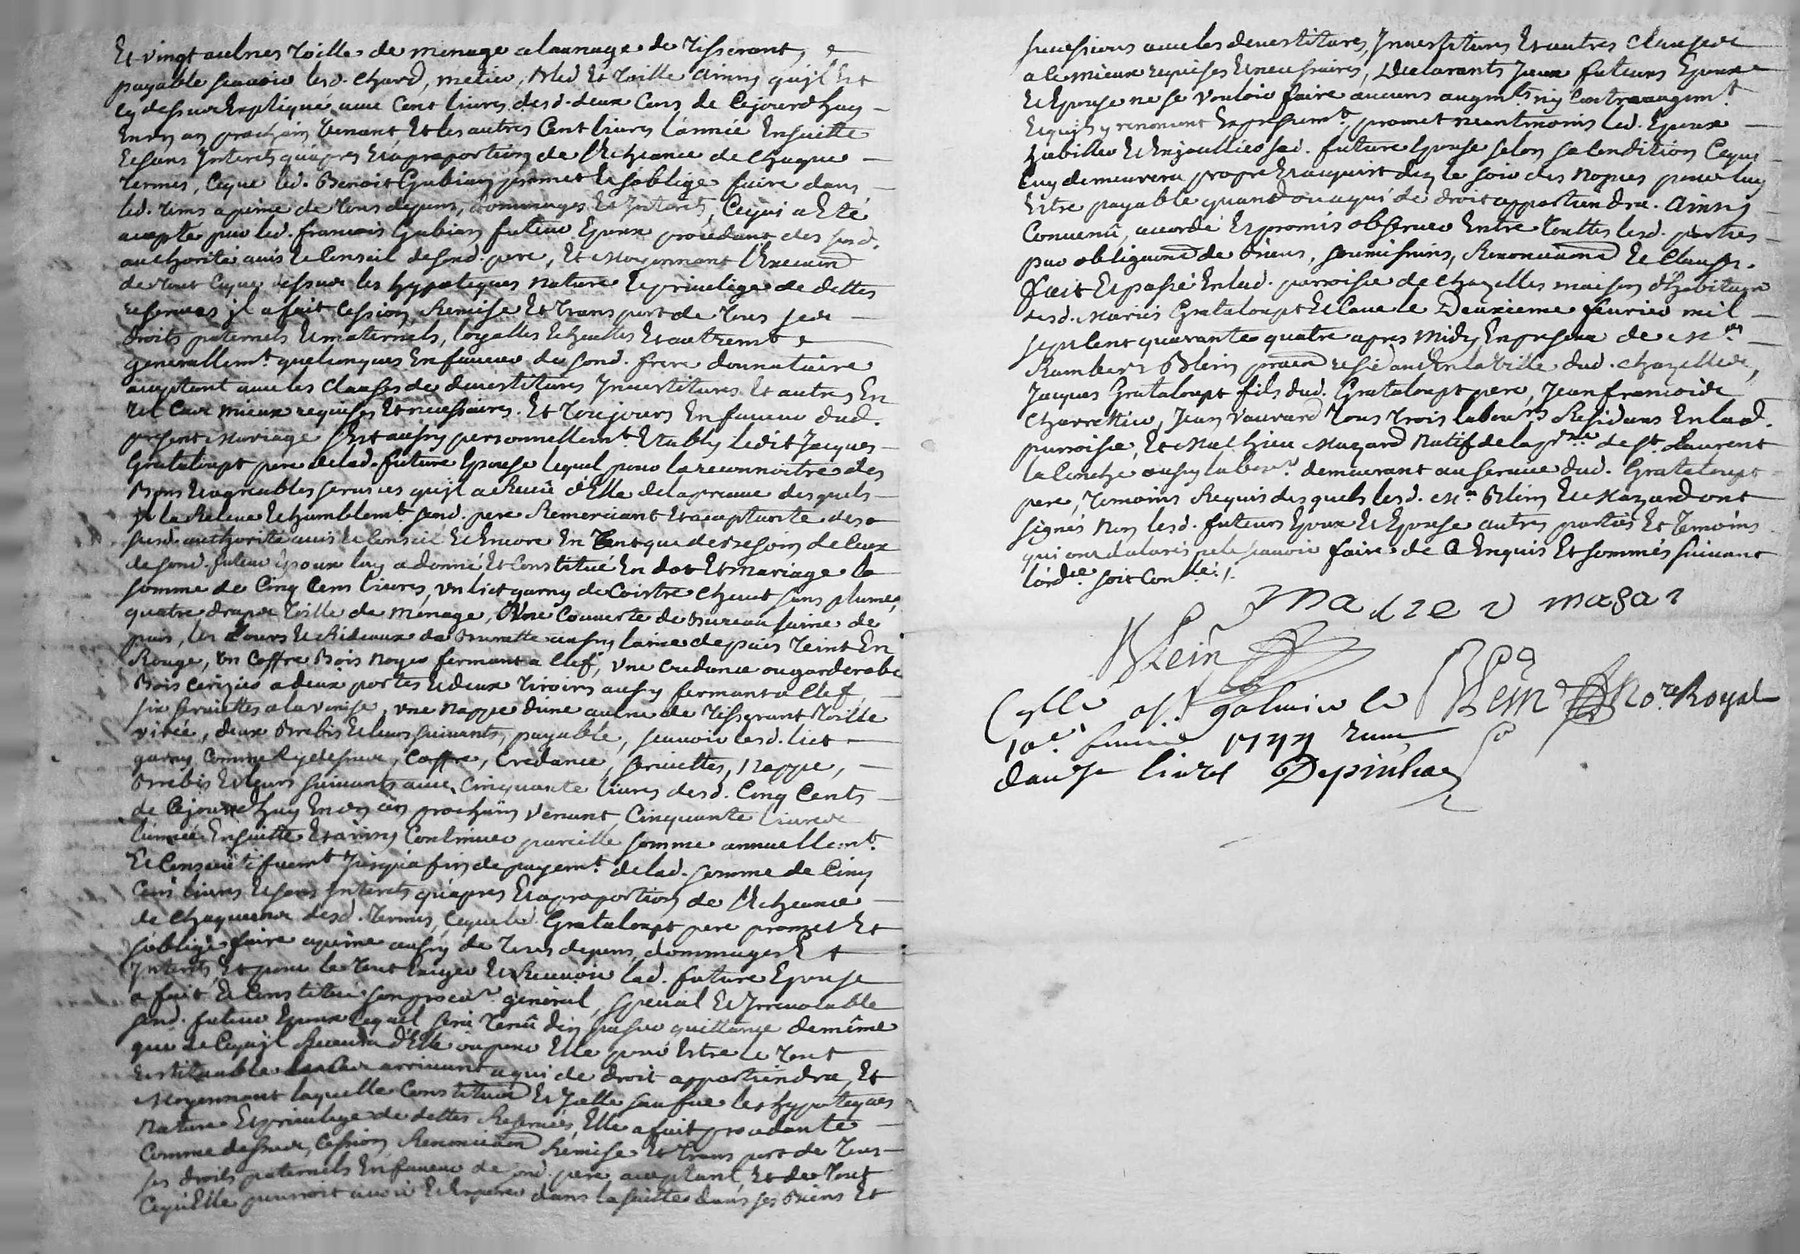 Et vingt aulnes Toille de menage alaunage de Tisserant, &
payable scavoir lesd. Chard, metier, Bled Et Toille Ainsy qujl Est
Cy dessus Expliqué avec Cent livres desd. deux Cens de Cejourdhuy
En un an prochain venant Et les autres Cent livres l'année Ensuitte
Et sans Jnterets qu'apres Et aproportion de l'Echeance de Chaque
Termes, Ceque led. Benoit Gubian promet Et soblige faire dans
led. tems apeine de tous depens, dommages Et Jnterets, Cequi a Eté
accepté par led. francois Gubian futeur Epoux procedant des susd.
authorité avis Et Conseil desond. pere, Et Moyennant l'Execution
de tout Ceque dessus les hypoteques nature Et privilege de dettes
reservés jl a fait Cession, Remise Et transport de Tous ses
droits paternels Et maternels, loyalles Echuttes Et autremt
generallemt quelconques En faveur de sond. frere donnataire
acceptant avec les Clauses de devestitures Jnvestitures Et autres En
tel Cas mieux requises Et necessaires. Et Toujours En faveur dud.
present Mariage s'Est aussy personnellemt Etably ledit Jacques
Grataloupt pere delad. future Epouse lequel pour la reconnoitre des
Bons Et agreables services qujl a Receu d'Elle delapreuve desquels
jl la Releve Et humblemt sond. pere Remerciant Et acceptante de
susd. authorité avis Et Conseil Et Encore En Tant que de besoin de Ceux
de sond. futeur époux luy a donné Et Constitué En dot Et mariage la
somme de Cinq Cens livres, un lict garny de Coistre Chevet sans plume,
quatre draps Toille de menage, Une Couverte de Bureau laine de
païs, les Tours Et Rideaux de Burratte aussy laine depais teint En
Rouge, un Coffre Bois Noyer fermant a Clef, une Credance ougarderobe
Bois Cerizier a deux portes Et deux Tiroirs aussy fermant a Clef
six serviettes a la venise, une Nappe d'une aulne de Tisserant Toille
virée, deux Brebis Et leurs suivants, payable, scavoir lesd. lict
garny Comme Cydessus, Coffre, Credance, serviettes, Nappe,
Brebis Et leurs suivants avec Cinquante livres desd. Cinq Cents
de Cejourdhuy En un an prochain venant Cinquante livres
l'année Ensuitte Et ainsy Continuer pareille somme annuellemt
Et Consecutifvemt jusqu'a fin de payemt delad. somme de Cinq
Cens livres Et sans Jnterets qu'apres Et aproportion de l'Echeance
de Chaqu'une desd. Termes, Ceque led. Grataloupt pere promet Et
s'oblige faire apeine aussy de Tous depens, dommages Et
Jnterets, Et pour le tout Exiger Et Recevoir lad. future Epouse
a fait Et Constitué son procur. général, special Et Jrrevocable
sond. futeur Epoux lequel sera Tenu d'en passer quittance demême
que de Cequjl Recevra d'Elle ou pour Elle pour Estre le Tout
Restituable arrivant a qui de droit appartiendra, Et
Moyennant laquelle Constitution Et Jcelle sauf les hypoteques
Nature Et privilege de dettes Reservés, Elle a fait procedante
Comme dessus Cession Renonciation Remise Et transport de Tous
ses droits paternels En faveur de sond. pere acceptant, Et de Tout
Cequ'Elle pourroit avoir Et Esperer dans la suitte dans ses Biens Et
successions avec les devestitures, Jnvestitures Et autres Clauses
a Ce mieux requises Et necessaires, Declarants Jceux futeurs Epoux
Et Epouse ne se vouloir faire aucuns augmts ny Contreaugmt
Et qujls y renoncent Expressemt, promet neantmoins led. Epoux
habiller Et Enjoallier sad. future Epouse selon sa Condition Cequi
luy demeurera propre Et acquis des le soir des Nopces pour luy
Estre payable quand ou aqui de droit appartiendra. Ainsy
Convenû, accordé Et promis observer Entre touttes lesd. parties
par obligaon de Biens, soumissions, Renonciaon Et Clauses.
fait Et passé En lad. parroisse de Chazelles maison d'habitaon
desd. mariés Grataloupt Et Cave le Deuxieme fevrier mil
septCent quarante quatre apres Midy En presence de Mre
Rambert Blein praen residant En la ville dud. Chazelles,
Jacques Grataloupt fils dud. Grataloupt pere, Jean francois
Charretier, Jean Vauvard Tous Trois labours Residans En lad.
parroise, Et Mathieu Mazard Natif de la psse de St. Laurent
la Conche aussy labour. demeurant au service dud. Grataloupt
pere, Temoins Requis desquels lesd. Mre Blein Et Mazard ont
signés Non lesd. futeurs Epoux Et Epouse autres parties Et Temoins
qui ont declarés ne le scavoir faire de Ce Enquis Et sommés suivant
l'ordce soit Conllé./.
Madieu masar
Blein
Cllé a St. galmier le Blein Nore Royal
10e. fevrier 1744 Recu
douze livres Depinhac